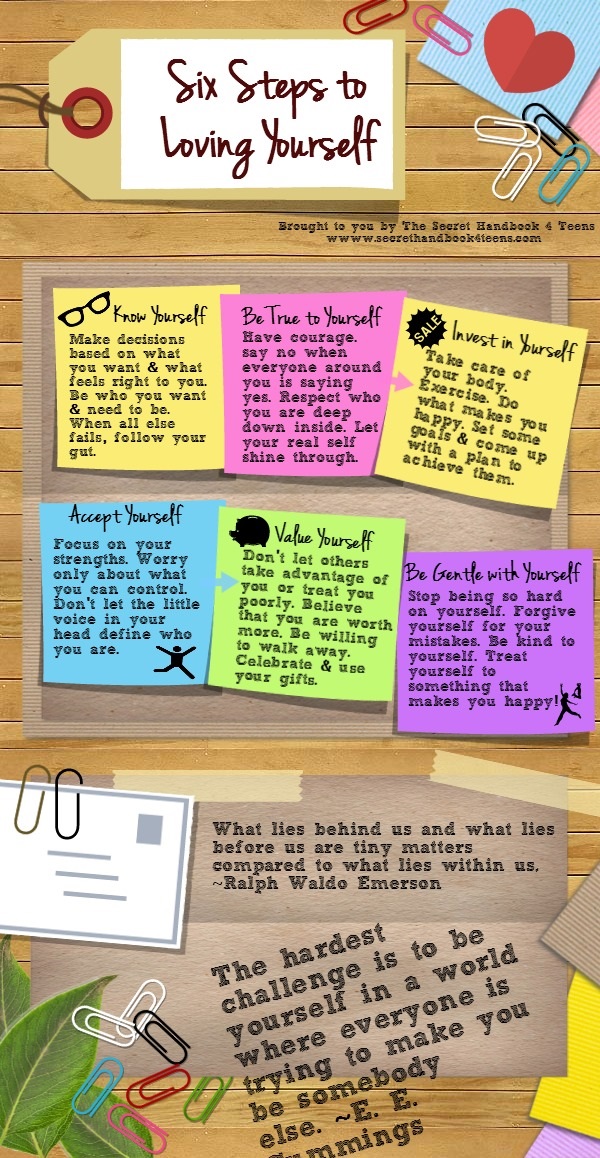 Six Steps to
Loving Yourself
Brought to you by The Secret Handbook 4 Teens
www.secrethandbook4teens.com
Know Yourself
Make decisions
based on what
you want & what
feels right to you.
Be who you want
& need to be.
When all else
fails, follow your
gut.
Be True to Yourself
Have courage.
say no when
everyone around
you is saying
yes. Respect who
you are deep
down inside. Let
your real self
shine through.
SALE
Invest in Yourself
Take care of
your body.
Exercise. Do
what makes you
happy. Set some
goals & come up
with a plan to
achieve them.
Accept Yourself
Focus on your
strengths. Worry
only about what
you can control.
Don't let the little
voice in your
head define who
you are.
Value Yourself
Don't let others
take advantage of
you or treat you
poorly. Believe
that you are worth
more. Be willing
to walk away.
Celebrate & use
your gifts.
Be Gentle with Yourself
Stop being so hard
on yourself. Forgive
yourself for your
mistakes. Be kind to
yourself. Treat
yourself to
something that
makes you happy!
What lies behind us and what lies
before us are tiny matters
compared to what lies within us.
~Ralph Waldo Emerson
The hardest
challenge is to be
yourself in a world
where everyone is
trying to make you
be somebody
else. ~E. E.
Cummings